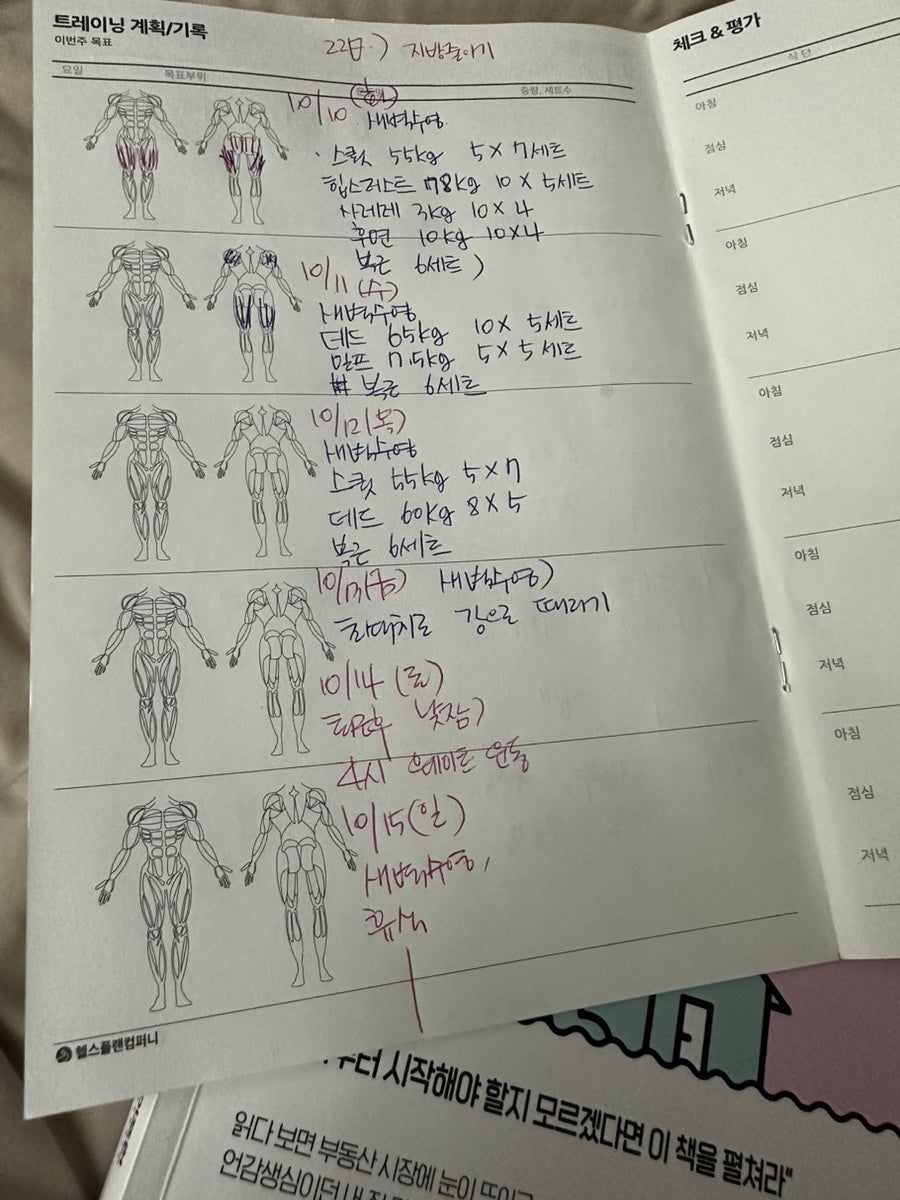 트레이닝 계획/기록
이번주 목표
22일) 지방줄이기
요일 목표부위 중량, 세트수
10/10 (화)
새벽수영
스쿼트 55kg 5×7세트
힙스러스트 78kg 10×5세트
사레레 3kg 10×4
후면 10kg 10×4
복근 6세트)
10/11 (수)
새벽수영
데드 65kg 10× 5세트
밀프 17.5kg 5×5세트
복근 6세트
10/12(목)
새벽수영
스쿼트 55kg 5×7
데드 60kg 8×5
복근 6세트
10/13(금) 새벽수영)
강으로 때리기
10/14 (토)
낮잠)
4시 웨이트 운동
10/15(일)
새벽수영,
휴식
헬스플랜컴퍼니
체크 & 평가
식단
아침
점심
저녁
아침
점심
저녁
아침
점심
저녁
아침
점심
저녁
아침
점심
저녁
부터 시작해야 할지 모르겠다면 이 책을 펼쳐라"
읽다 보면 부동산 시장에 눈이
언감생심이던 내 집